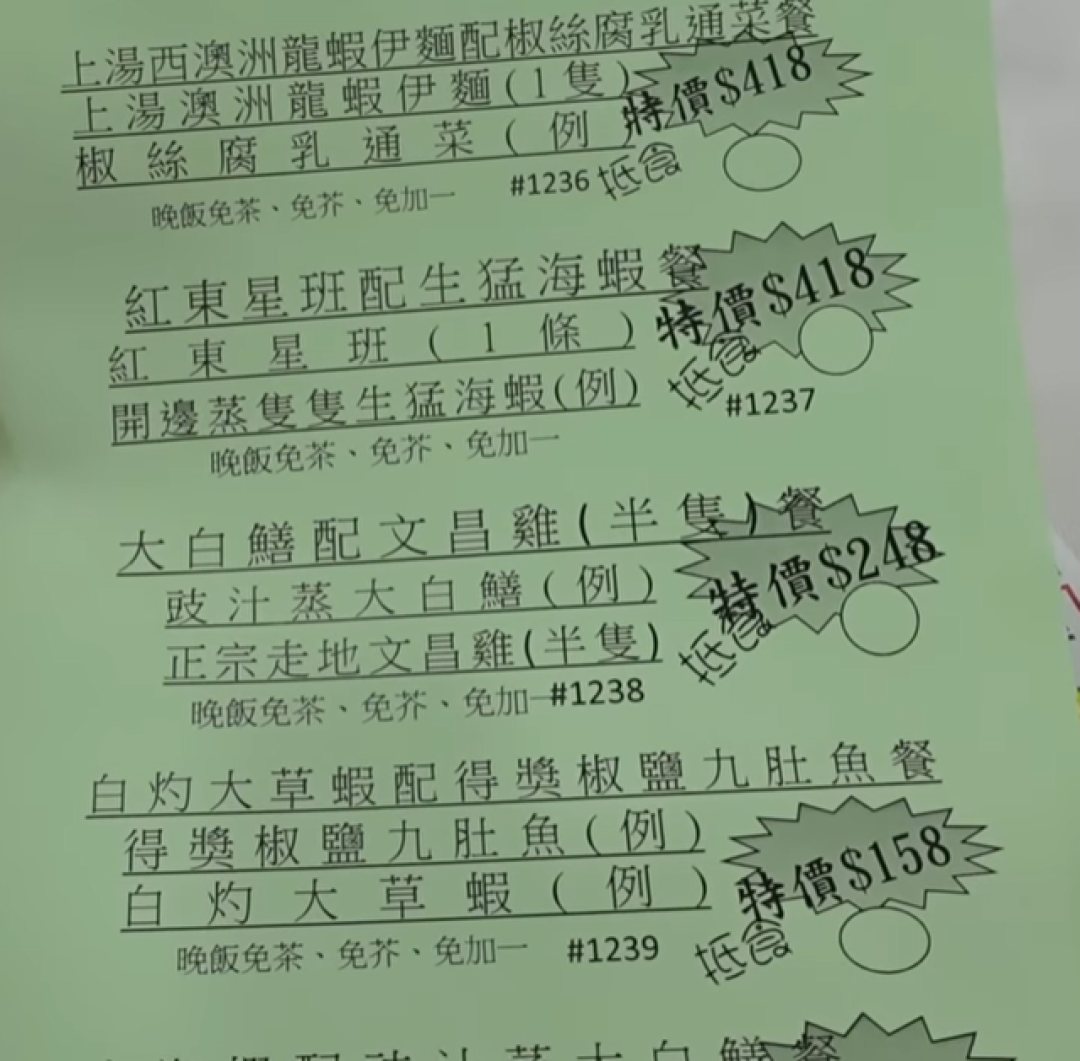 上湯西澳洲龍蝦伊麵配椒絲腐乳通菜餐
上湯澳洲龍蝦伊麵(1隻)
特價$418
椒絲腐乳通菜(例)
晚飯免茶、免芥、免加一 #1236 抵食
紅東星班配生猛海蝦餐
特價$418
紅東星班(1條)
抵食
開邊蒸隻隻生猛海蝦(例)
#1237
晚飯免茶、免芥、免加一
大白鱔配文昌雞(半隻)餐
特價$248
豉汁蒸大白鱔(例)
正宗走地文昌雞(半隻)
抵食
晚飯免茶、免芥、免加一#1238
白灼大草蝦配得獎椒鹽九肚魚餐
得獎椒鹽九肚魚(例)
特價$158
白灼大草蝦(例)
晚飯免茶、免芥、免加一 #1239 抵食
配豉汁蒸大白鱔餐